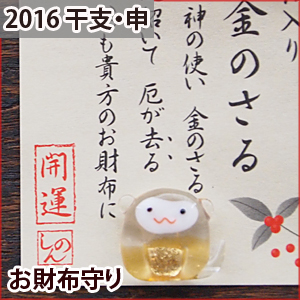 2016 干支・申
入り
金のさる
神の使い 金のさる
招いて 厄が去る
も貴方のお財布に
開運
のん
しん
お財布守り